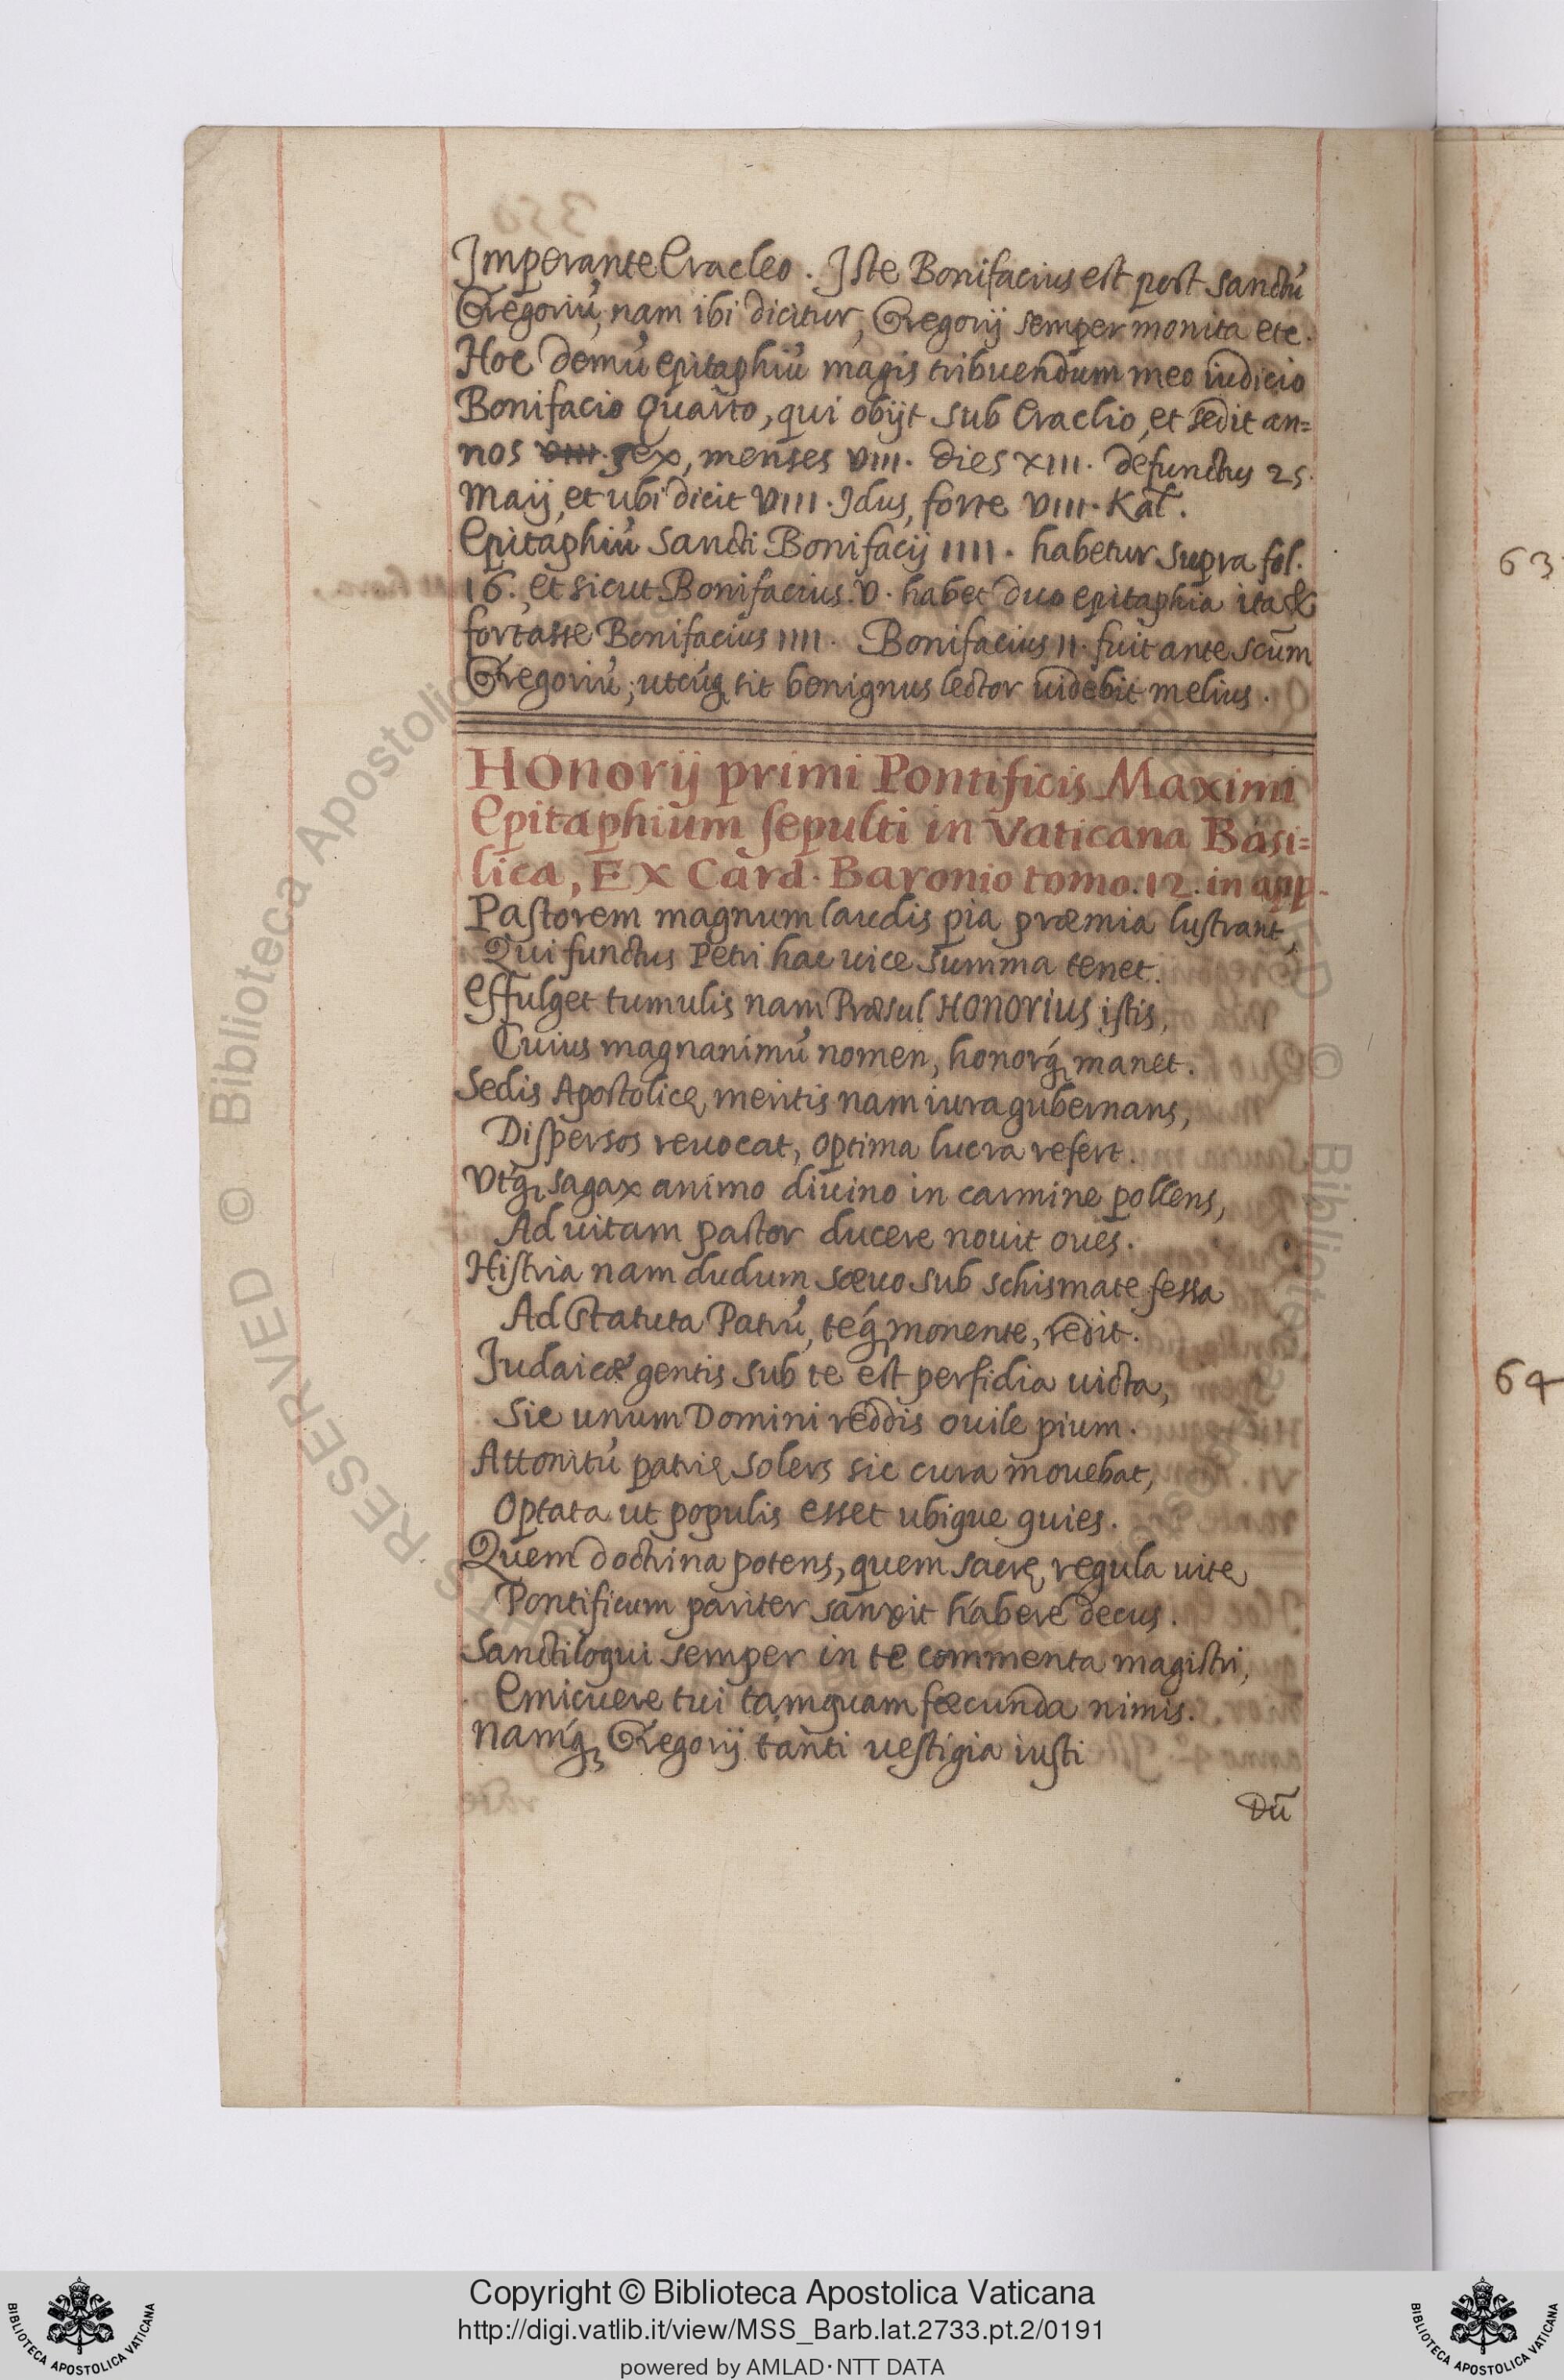 Imperante Eracleo. Iste Bonifacius est post sanctũ
Gregoriũ, nam ibi dicitur, Gregorij semper monita etc.
Hoc demũ epitaphiũ magis tribuendum meo iudicio
Bonifacio Quarto, qui obijt sub Eraclio, et sedit an=
nos VIIII. sex, menses VIII. dies XIII. defunctus 25.
Maij, et ubi dicit VIII. Idus, forte VIII. Kal̃.
Epitaphiũ Sancti Bonifacij IIII. habetur supra fol.
16., et sicut Bonifacius. V. habet duo epitaphia ita &
fortasse Bonifacius IIII. Bonifacius II. fuit ante scũm
Gregoriũ; utcũq; sit benignus lector uidebit melius.
Honorij primi Pontificis Maximi
Epitaphium sepulti in Vaticana Basi=
lica, Ex Card. Baronio tomo. 12. in app.
Pastorem magnum laudis pia præmia lustrant,
Qui functus Petri hac uice summa tenet.
Effulget tumulis nam Præsul HONORIUS istis,
Cuius magnanimũ nomen, honorq́; manet.
Sedis Apostolicę meritis nam iura gubernans,
Dispersos reuocat, optima lucra refert.
Vtq́; sagax animo diuino in carmine pollens,
Ad uitam pastor ducere nouit oues.
Histria nam dudum sæuo sub schismate fessa
Ad statuta Patrũ, teq́; monente, redit.
Judaicæ gentis sub te est perfidia uicta,
Sic unum Domini reddis ouile pium.
Attonitũ patrię solers sic cura mouebat,
Optata ut populis esset ubique quies.
Quem doctrina potens, quem sacrę regula uitę
Pontificum pariter sanxit habere decus.
Sanctiloqui semper in te commenta magistri,
Emicuere tui tamquam fæcunda nimis.
Namq́; Gregorij tanti uestigia iusti
Dũ
63
64
RESERVED © Biblioteca Apostolica
© Biblioteca Apostolica
Copyright © Biblioteca Apostolica Vaticana
http://digi.vatlib.it/view/MSS_Barb.lat.2733.pt.2/0191
powered by AMLAD·NTT DATA
BIBLIOTECA APOSTOLICA VATICANA
BIBLIOTECA APOSTOLICA VATICANA